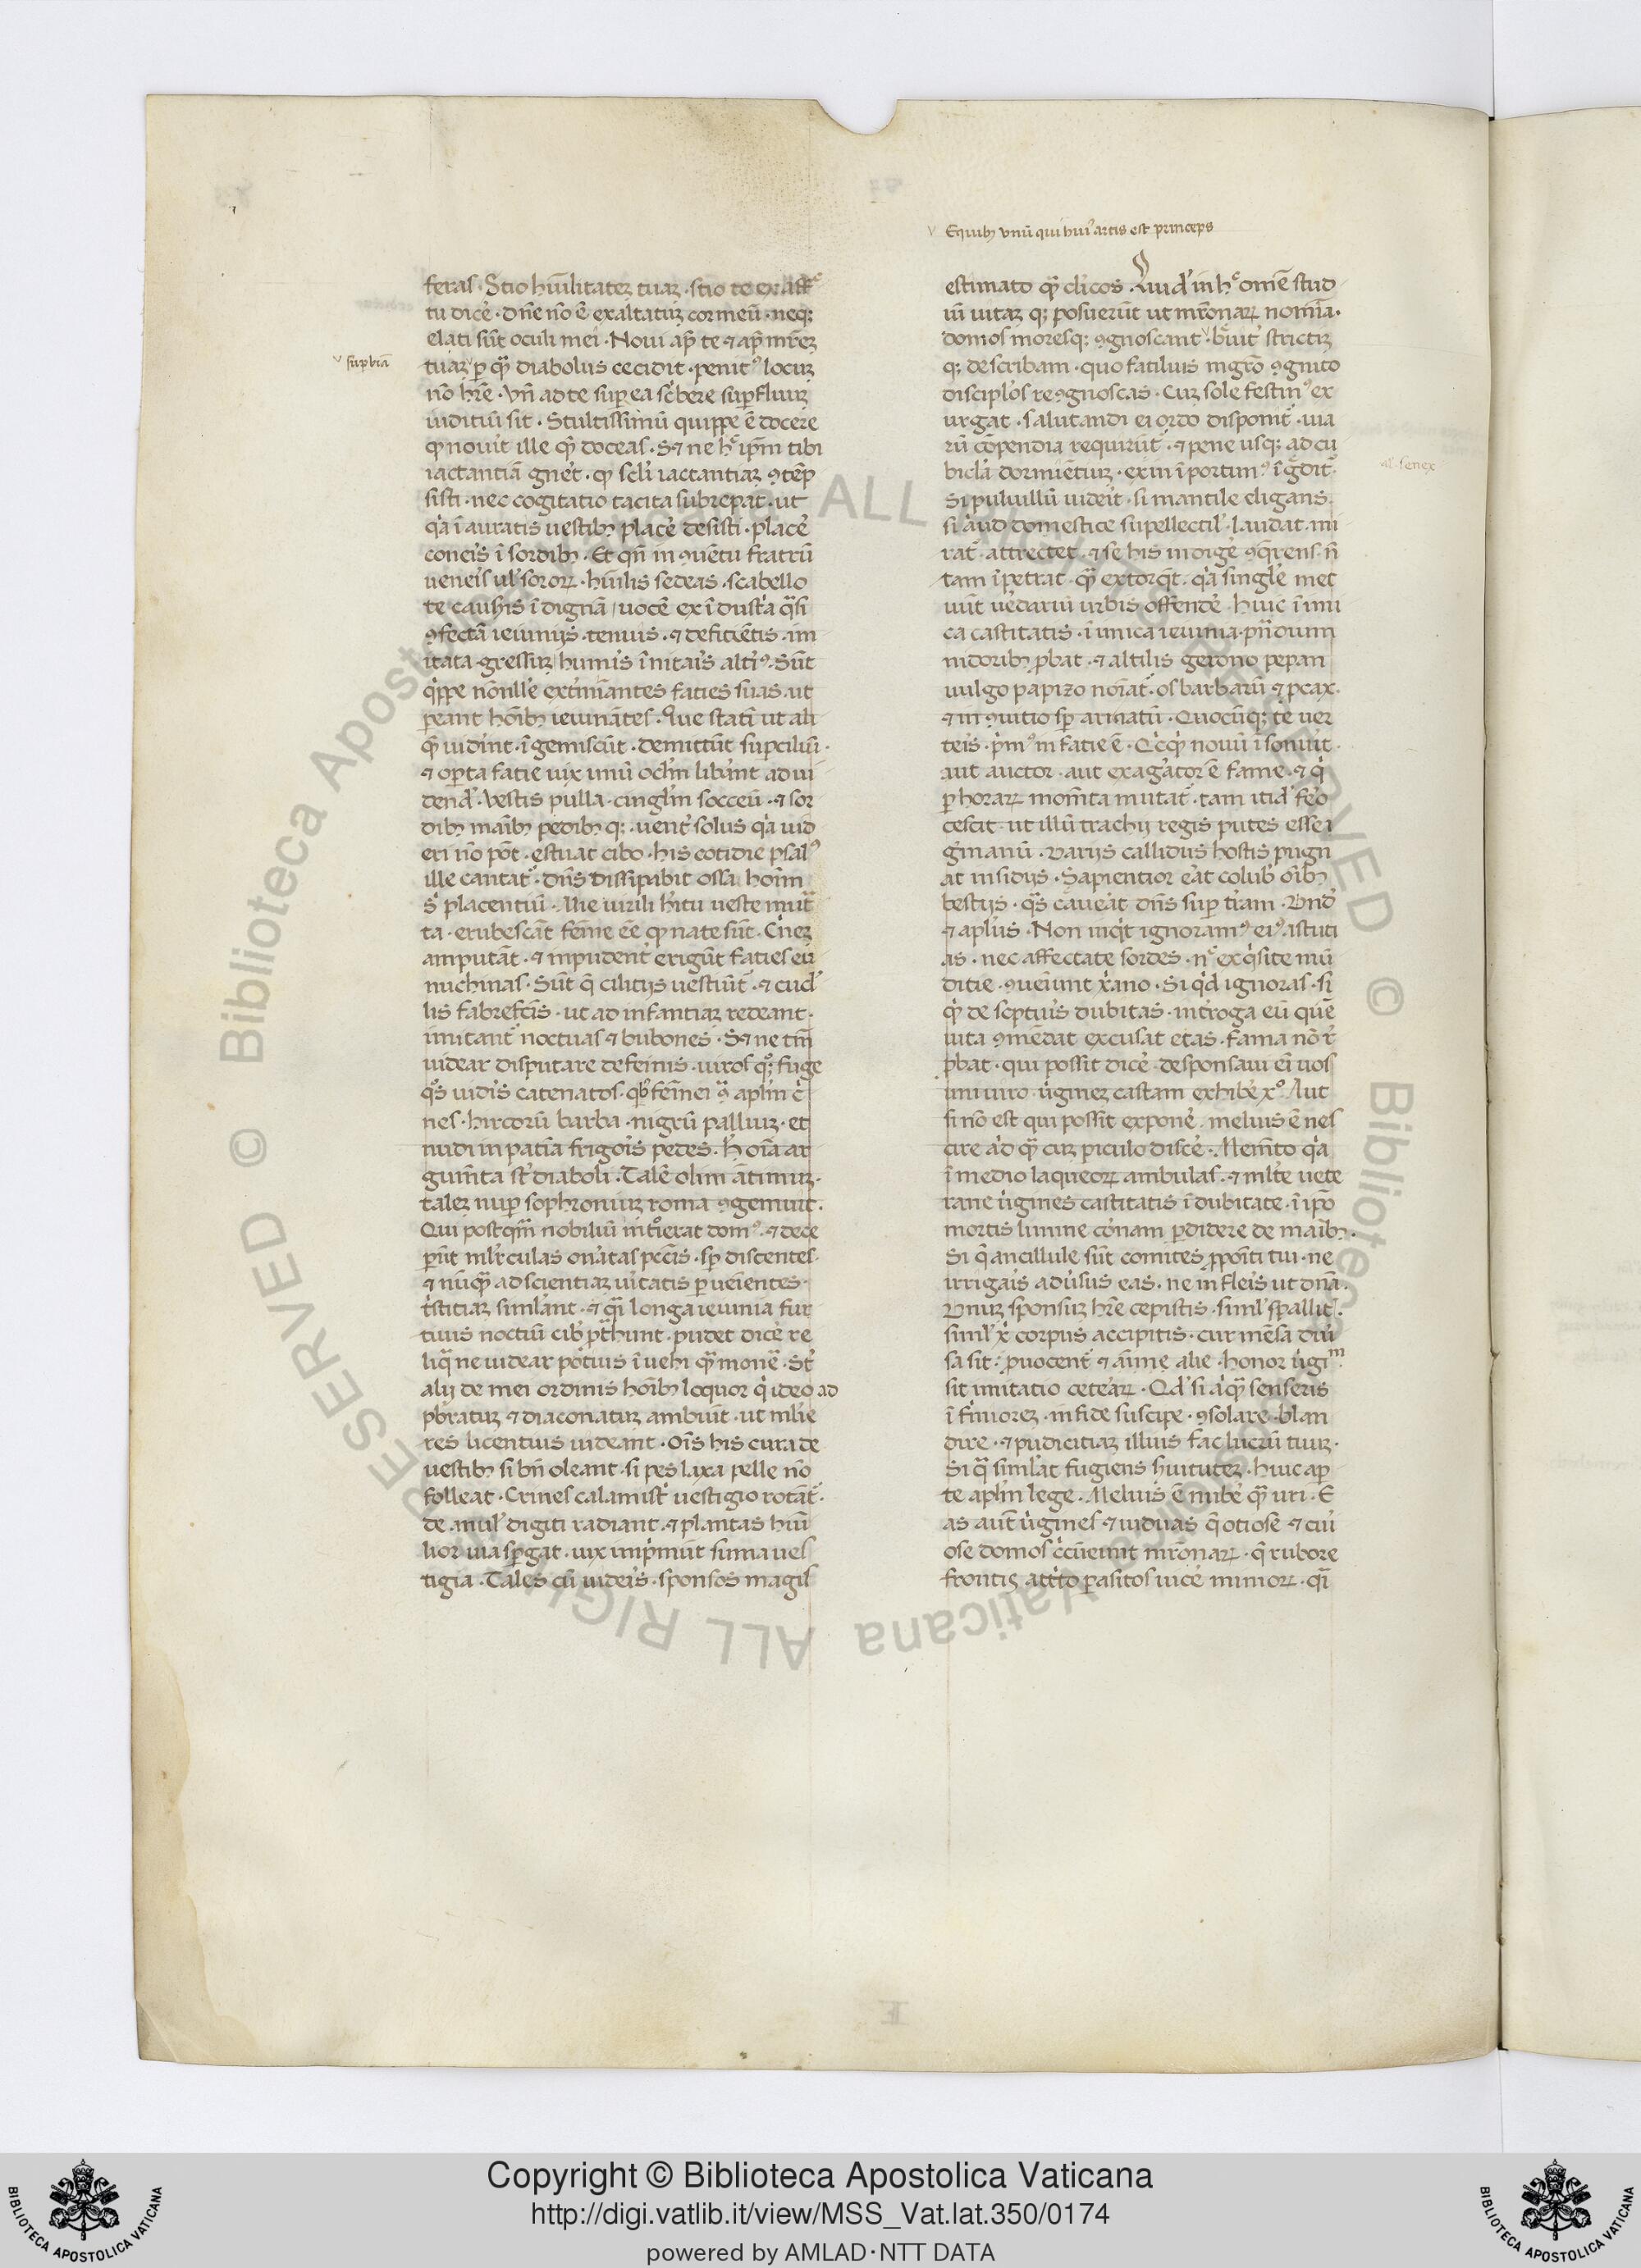 feras · Scio hūilitatē tuaꝫ · scio te ex aff̄cu
tu dicé · dn̄e nō ē exaltatuꝫ cor meū · neqꝫ
elati sūt oculi mei · Noui ap̄ te ⁊ ap̄ mr̄eꝫ
supbiā
tuaꝫ ꝑ qm̄ diabolus cecidit · penitꝰ locuꝫ
nō hr̄e · Vn̄ ad te suꝑ ea sc̓bere suꝑfluuꝫ
iuditiū sit · Stultissimū quippe ē docere
ꝙ nouit ille qm̄ doceas · Sꝫ ne hͦ ip̄m tibi
iactantiā gn̓et · ꝙ scl̓i iactantiaꝫ ꝯtēp
sisti · nec cogitatio tacita subrepat · ut
qa ī auratis uestibꝫ placé desisti · placé
coneis ī sordibꝫ · Et qn̄ in ꝯuētu fratrū
ueneis ul̓ sororꝝ · hūilis sedeas · scabello
te causis īdignā · uocē ex īdustá q̄si
ꝯfectā ieiunijs · tenuis · ⁊ deficiētis · im
itata gressuꝫ humis īnitais altīꝰ · Sūt
q̓ppe nōnlle extīnātes facies suas · ut
ꝑeant hōibꝫ ieiunātes · Que stati ut ali
qm̄ uidint · īgemiscūt · demittūt suꝑciliū ·
⁊ oꝑta facie uix unū ocl̓m libint ad ui
dend̓ · Vestis pulla · cingl̓m socceū · ⁊ sor
dibꝫ maībꝫ pedibꝫ qꝫ · uent̓ solus qa uid
eri nō pōt · estuat cibo · his cotidie psalꝰ
ille cantat̓ · dn̄s dissipabit ossa hoīm
s̓ placentiū · Alie uirili hitu ueste mut̄
ta · erubescāt femīe eē ꝙ nate sūt · Cineꝫ
amputāt · ⁊ inpudent̓ erigūt facies eu
nuchinas · Sūt q̄ cilitijs uestiūt̓ · ⁊ cucl̓
lis fabrefctīs · ut ad infantiaꝫ redeant ·
imitant̓ noctuas ⁊ bubones · Sꝫ ne tm̄
uidear disputare de feīnis · uiros qͦqꝫ fuge
qͦs uidis catenatos · qͥbꝫ feīnei ꝯ apl̓m c̓
nes · hircorū barba · nigrū palliuꝫ · et
nudi in patīa frigois pedes · h̓ oīa ar
gum̄ta st̄ diaboli · Talē olim ātimuꝫ ·
taleꝫ nuꝑ sophroniuꝫ roma ꝯgemuit ·
Qui postqm̄ nobiliū int̓oierat domꝰ · ⁊ dece
ꝑūt ml̓r̄culas on̄atas pctīs · sꝑ discentes ·
⁊ nūqm̄ ad scientiaꝫ uitatis ꝑueīentes ·
tistitiaꝫ siml̓ant · ⁊ q̄i longa ieiunia fur
tiuis noctiū cibꝭ pthunt · pudet dicé re
liq̄ ne uidear potius īuehi qm̄ mone · St̄
alij de mei ordinis hōibꝫ loquor q̓ ideo ad
pbr̄atuꝫ ⁊ diaconatuꝫ ambiūt · ut ml̓ie
res licentius uideant · Oīs his cura de
uestibꝫ si bn̄ oleant · si pes laxa pelle nō
folleat · Crines calamist̓ uestigio rotāt̓ ·
de anul̓ digiti radiant · ⁊ plantas hūi
lior uia spgat · uix imp̓mūt suma ues
tigia · Tales cū uideis · sponsos magis
Equibꝫ vnū qui huiꝰ artis est princeps
estimato qm̄ cl̓icos · Quid̓ in hͦ omē stud
iū uitaꝫ qꝫ posuerūt ut mr̄onaꝝ nomīa ·
domos moresqꝫ ꝯgnoscant · b̓uit̓ strictiꝫ
qꝫ describam · quo facilius mgr̄o ꝯgnito
discipl̓os reꝯgnoscas · Cuꝫ sole festinꝰ ex
urgat · salutandi ei ordo disponit̓ · uia
rū cōpendia requirūt̓ · ⁊ pene usqꝫ ad cu
al̓ · senex
bicl̓a dormiētuꝫ · exin īportunꝰ īgdit̓ ·
Si puluillū uideit · si mantile eligans ·
si aud domestice supellectil̓ · laudat · mi
rat̓ · attrectet · ⁊ se his indigé ꝯq̄rens · n̄
tam īpetrat · qm̄ extorq̄t · qa singl̓e met
uūt uedariū urbis offendé · huic īimi
ca castitatis · īimica ieiunia · pn̄dium
nidoribꝫ ꝓbat · ⁊ altilis gerono pepan
uulgo papizo noīat̓ · os barbarū ⁊ ꝓcax ·
⁊ in ꝯuitio sꝑ armatū · Quocūqꝫ te uer
teis · p̓mꝰ in facie ē · Qͥcqͥd nouū īsonuit ·
aut auctor · aut exagatōr ē fame · ⁊ q̓
ꝑ horaꝝ mom̄ta mutat̓ · tam itid̓ feo
cescit · ut illū trachij regis putes esse i
gmanū · Varijs callidus hostis pugn
at insidijs · Sapientior eat colub̓ oībꝫ
bestijs · q̄s caueat dn̄s suꝑ tr̄am · Vnd̓
⁊ apl̓us · Non inqͥt ignoramꝰ eiꝰ astuti
as · nec affectate sordes · n̄ exqͥsite mū
ditie · ꝯueīunt xāno · Si qͥd ignoras · si
qͥ de scptuis dubitas · introga eū quē
uita ꝯmēdat excusat etas · fama nō r̓
ꝓbat · qui possit dicé · desponsaui eī uos
uni uiro · ūgineꝫ castam exhibé xͦ · Aut
si nō est qui possit exponé · melius ē nes
cire ad qm̄ cuꝫ piculo discé · Mem̄to qa
ī medio laqueoꝝ ambulas · ⁊ mlt̓e uete
rane ūgines castitatis īdubitate · ī ipō
mortis limine coōnam ꝑdidere de maībꝫ ·
Si q̄ ancillule sūt comites ꝓpoīti tui · ne
irrigais aduīsus eas · ne infleis ut dn̄a ·
Vnuꝫ sponsuꝫ hr̄e cepistis · siml̓ spallit̓ ·
siml̓ x̓ corpus accipitis · cur mēsa diū
sa sit · ꝓuocent̓ ⁊ aīme alie · honor ūgim
sit inuitatio ceteaꝝ · Qd̓ si aqm̄ senseris
ī fīmioreꝫ · in fide suscipe · ꝯsolare · blan
dire · ⁊ pudicitiaꝫ illius fac lucrū tuuꝫ ·
Si q̄ siml̓at fugiens suituteꝫ · huic aꝑ
te apl̓m lege · Melius ē nubé qm̄ uri · E
as aut̄ ūgines ⁊ uiduas q̄ otiose ⁊ cui
ose domos c̓cūeunt mr̄onaꝝ · q̄ rubore
frontis attito ꝑasitos uicé mimoꝝ · q̄i
Copyright © Biblioteca Apostolica Vaticana
http://digi.vatlib.it/view/MSS_Vat.lat.350/0174
powered by AMLAD·NTT DATA
BIBLIOTECA APOSTOLICA VATICANA
BIBLIOTECA APOSTOLICA VATICANA